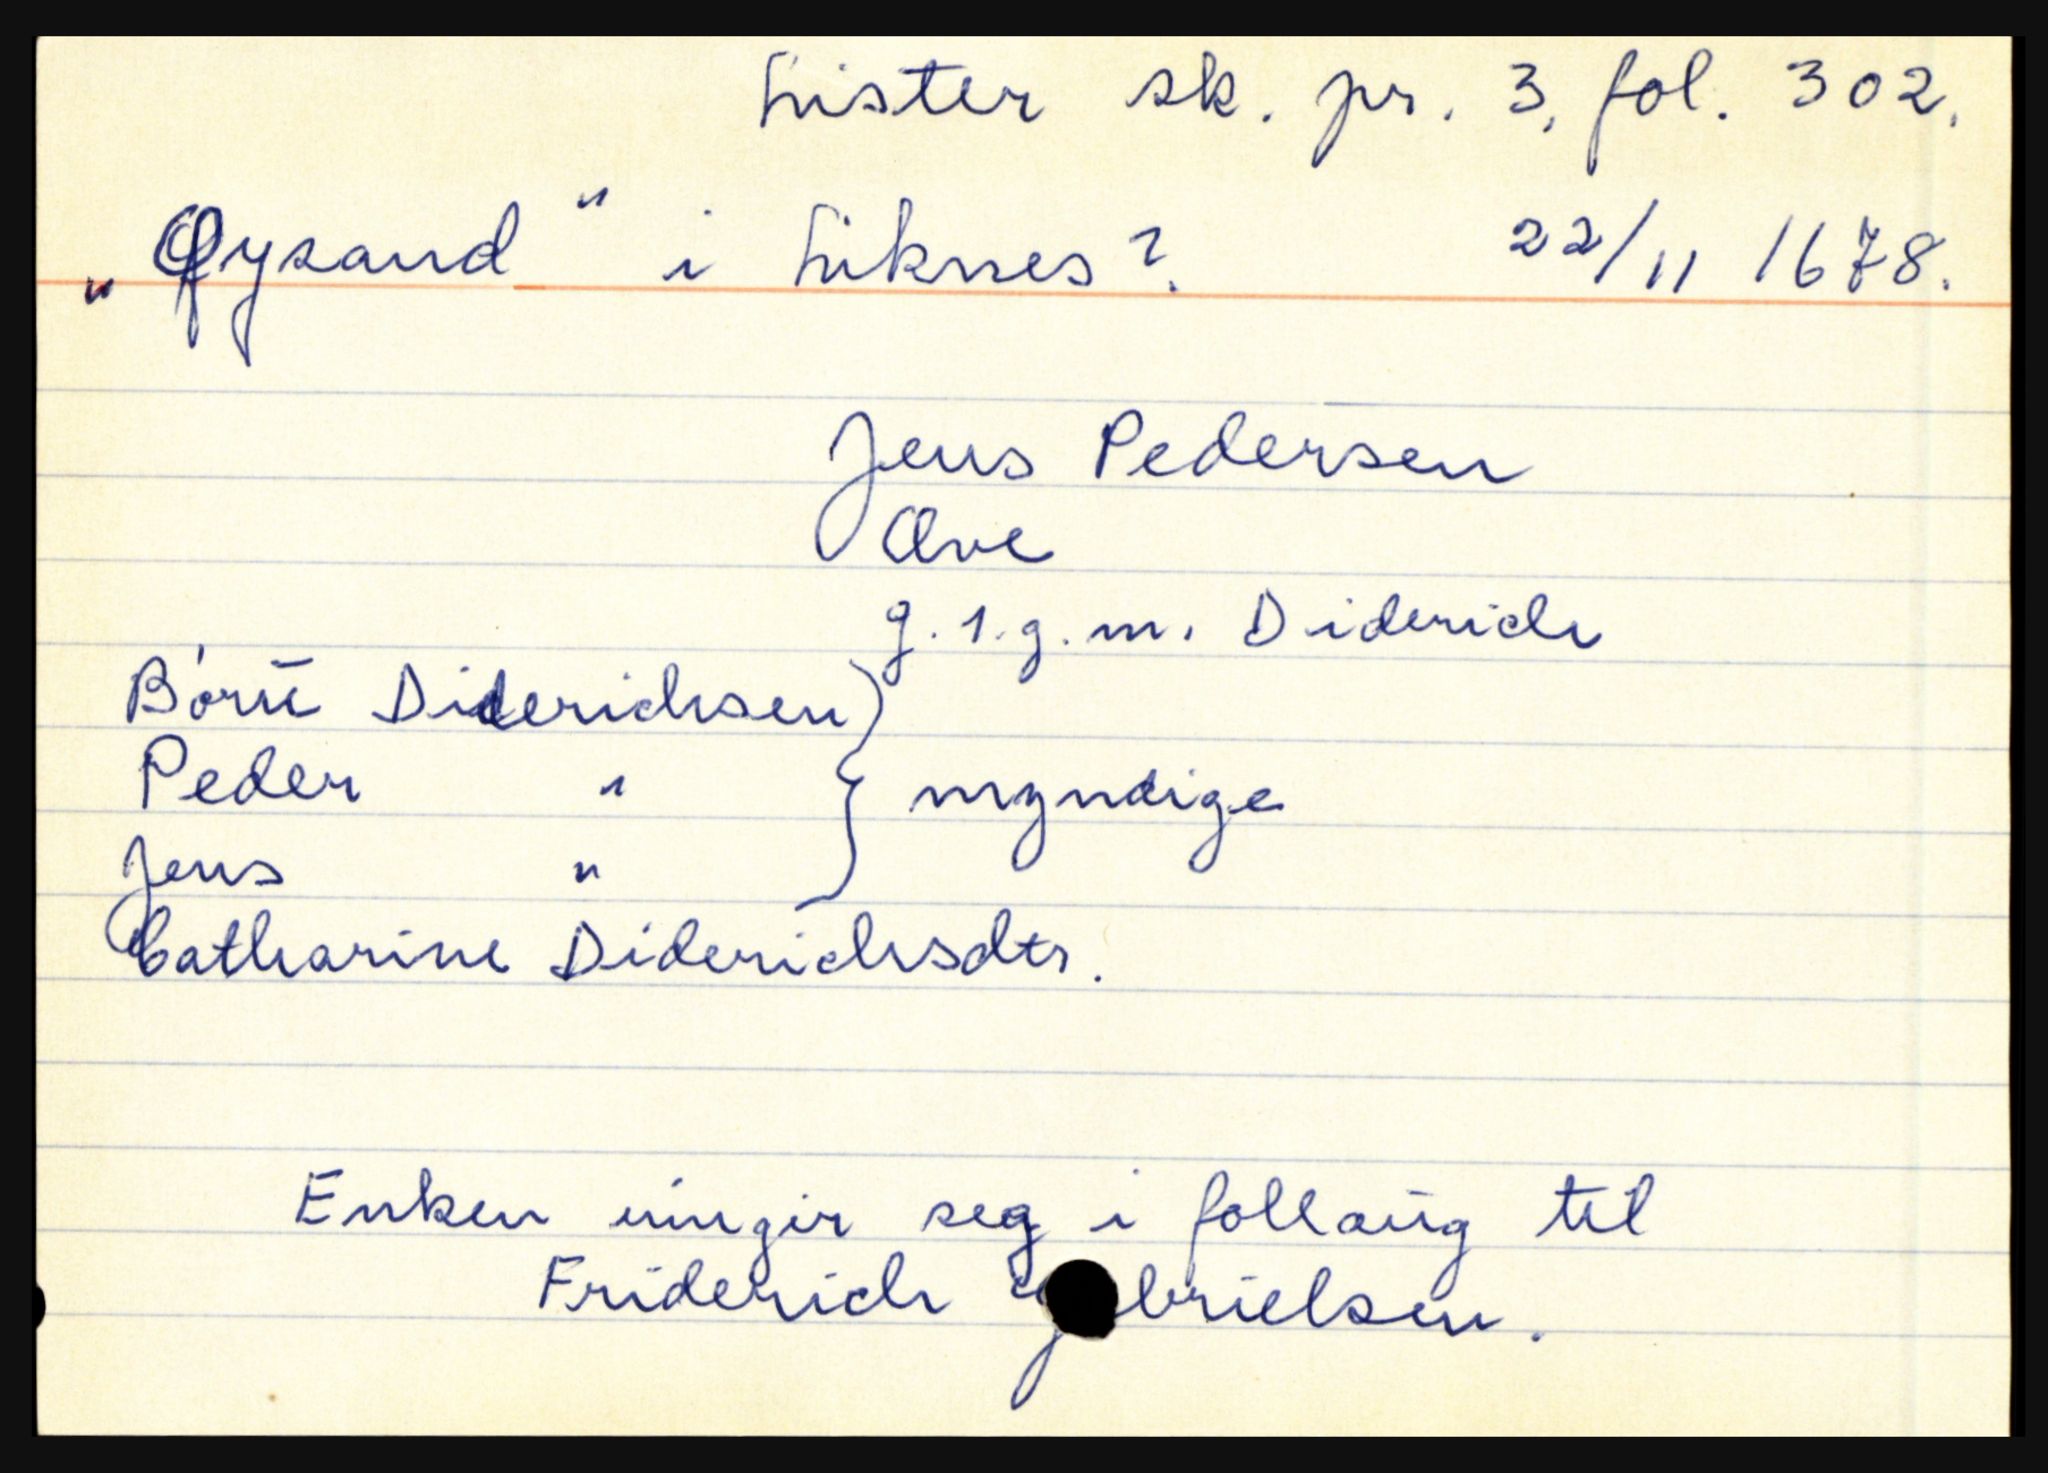 Lister sk. pr. 3, fol. 302.
„Øysand" i Liknes? 22/11 1678.
Jens Pedersen
Ove
g. 1. g. m. Diderich
Børu Diderichsen
Peder " } myndige
Jens "
Catharine Diderichsdtr.
Enken inngir seg i follaug til
Friderich G brielsen.